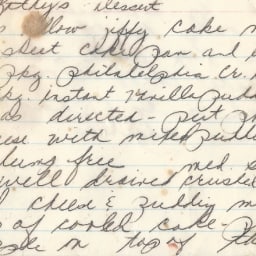 Kathy's Dessert
yellow jiffy cake m
sheet cake pan and b
pkg. Philadelphia Cr.
pkg. instant Vanilla pudd
as directed - put
cheese with mixed pudd
lump free med. s
well drain crushed
cheese & pudding m
of cooled cake - p
on top of